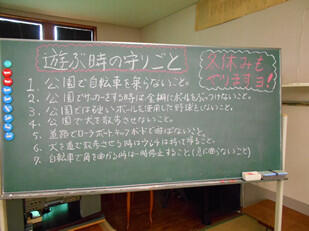 遊ぶ時の守りごと
冬休みも
やりますヨ!
1. 公園で自転車を乗らないこと。
2. 公園でサッカーをする時は金網にボールをぶつけないこと。
3. 公園では硬いボールを使用して野球をしないこと。
4. 公園で犬を散歩させないこと。
5. 道路でローラーボードやキックボードで遊ばないこと。
6. 犬を道で散歩させる時はウンチは持って帰ること。
7. 自転車で角を曲がる時は一時停止すること